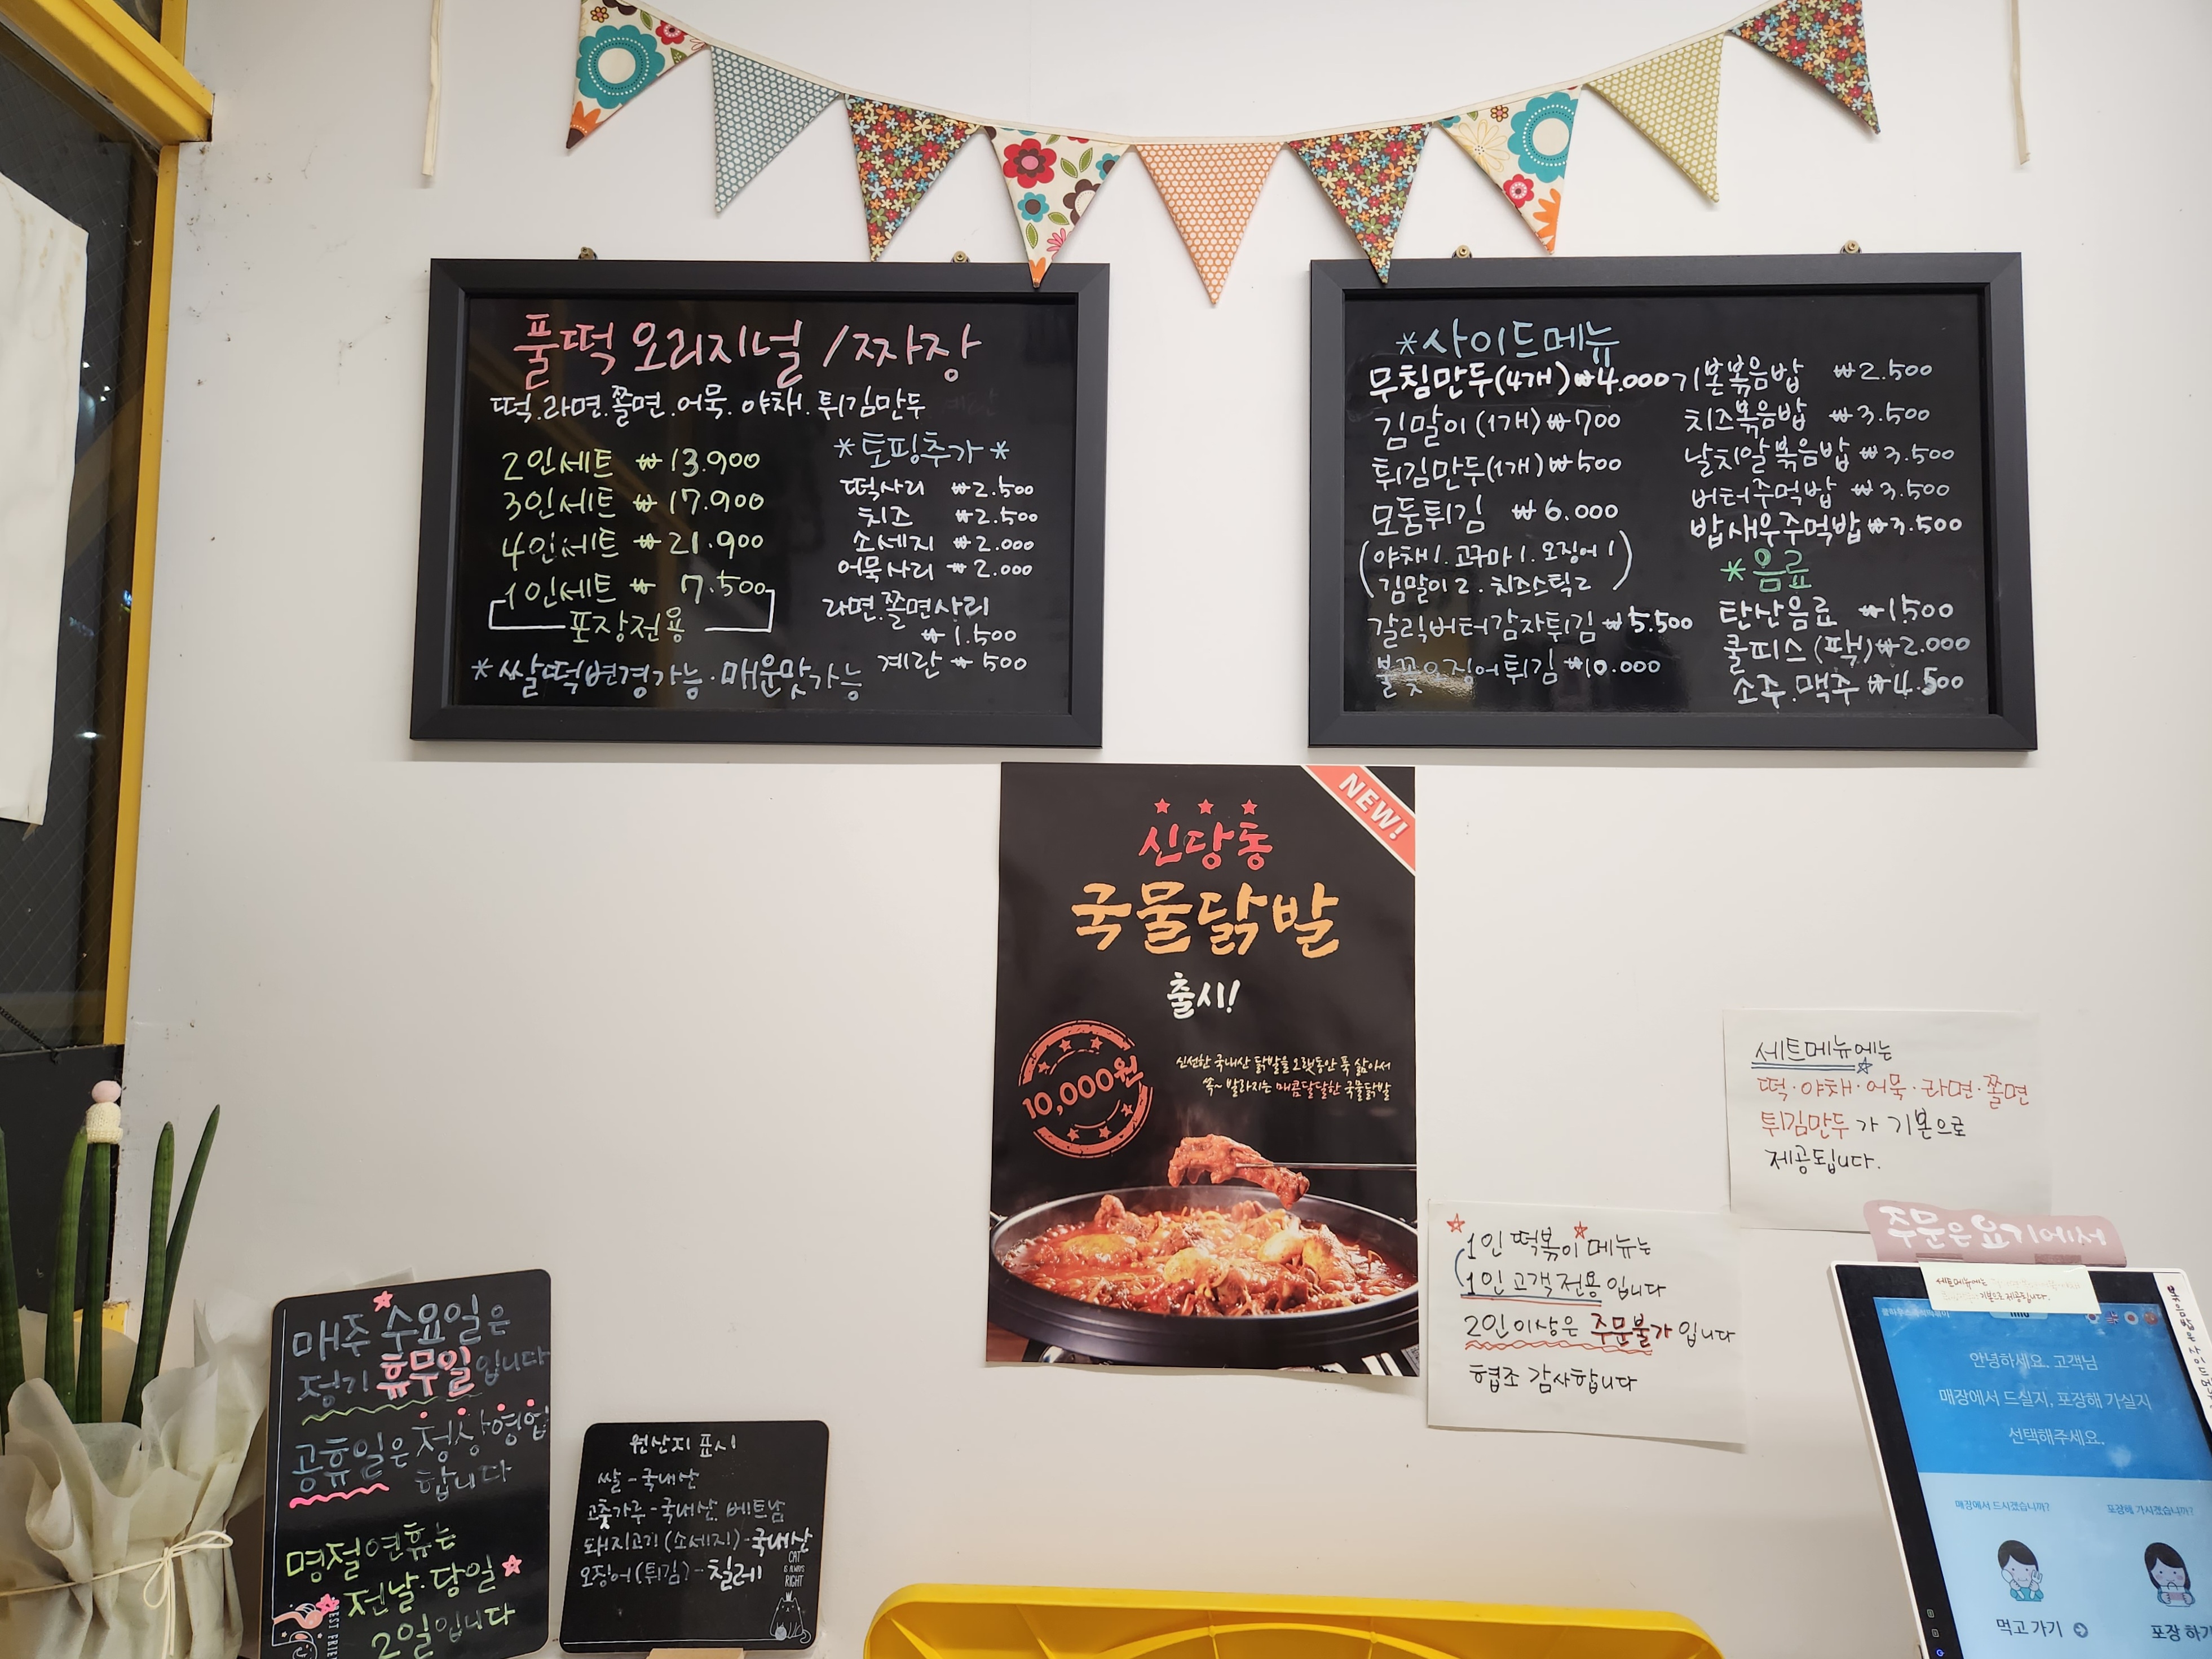 풀떡 오리지널 /짜장
떡.라면.쫄면.어묵.야채.튀김만두
2인세트 ₩13.900
3인세트 ₩17.900
4인세트 ₩21.900
1인세트 ₩ 7.500
포장전용
*토핑추가*
떡사리 ₩2.500
치즈 ₩2.500
소세지 ₩2.000
어묵사리 ₩2.000
라면.쫄면사리
₩1.500
계란 ₩500
*쌀떡변경가능.매운맛가능
*사이드메뉴
무침만두(4개)₩4.000
김말이(1개)₩700
튀김만두(1개)₩500
모둠튀김 ₩6.000
(야채1.고구마1.오징어1
김말이2.치즈스틱2)
갈릭버터감자튀김 ₩5.500
불꽃오징어튀김 ₩10.000
기본볶음밥 ₩2.500
치즈볶음밥 ₩3.500
날치알볶음밥 ₩3.500
버터주먹밥 ₩3.500
밥새우주먹밥₩3.500
*음료
탄산음료 ₩1500
쿨피스(팩)₩2.000
소주.맥주 ₩4.500
NEW!
신당동
국물닭발
출시!
10,000원
신선한 국내산 닭발을 오랫동안 푹 삶아서
쏙~ 발라지는 매콤달달한 국물닭발
세트메뉴에는
떡·야채·어묵·라면·쫄면
튀김만두가 기본으로
제공됩니다.
1인 떡볶이 메뉴는
1인 고객 전용 입니다
2인 이상은 주문불가 입니다
협조 감사합니다
주문은 요기에서
세트메뉴에는
기본으로 제공됩니다.
안녕하세요. 고객님
매장에서 드실지, 포장해 가실지
선택해주세요.
매장에서 드시겠습니까?
포장해 가시겠습니까?
먹고 가기
포장 하기
매주 수요일은
정기 휴무일입니다
공휴일은 정상영업
합니다
명절연휴는
전날.당일
2일입니다
원산지 표시
쌀 - 국내산
고춧가루 - 국내산. 베트남
돼지고기(소세지) - 국내산
오징어(튀김) - 칠레
CAT
IS ALWAYS
RIGHT